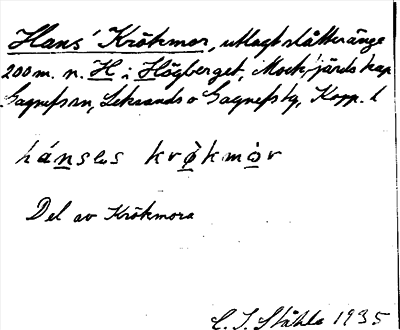 Hans' Krökmor, utlagt slåtteränge
200 m. n. H i Högberget, Mockfjärds kap
Gagnefs sn, Leksands o Gagnefs tg, Kopp. l
hánses krökmòr
Del av Krökmora
C. I. Ståhle 1935